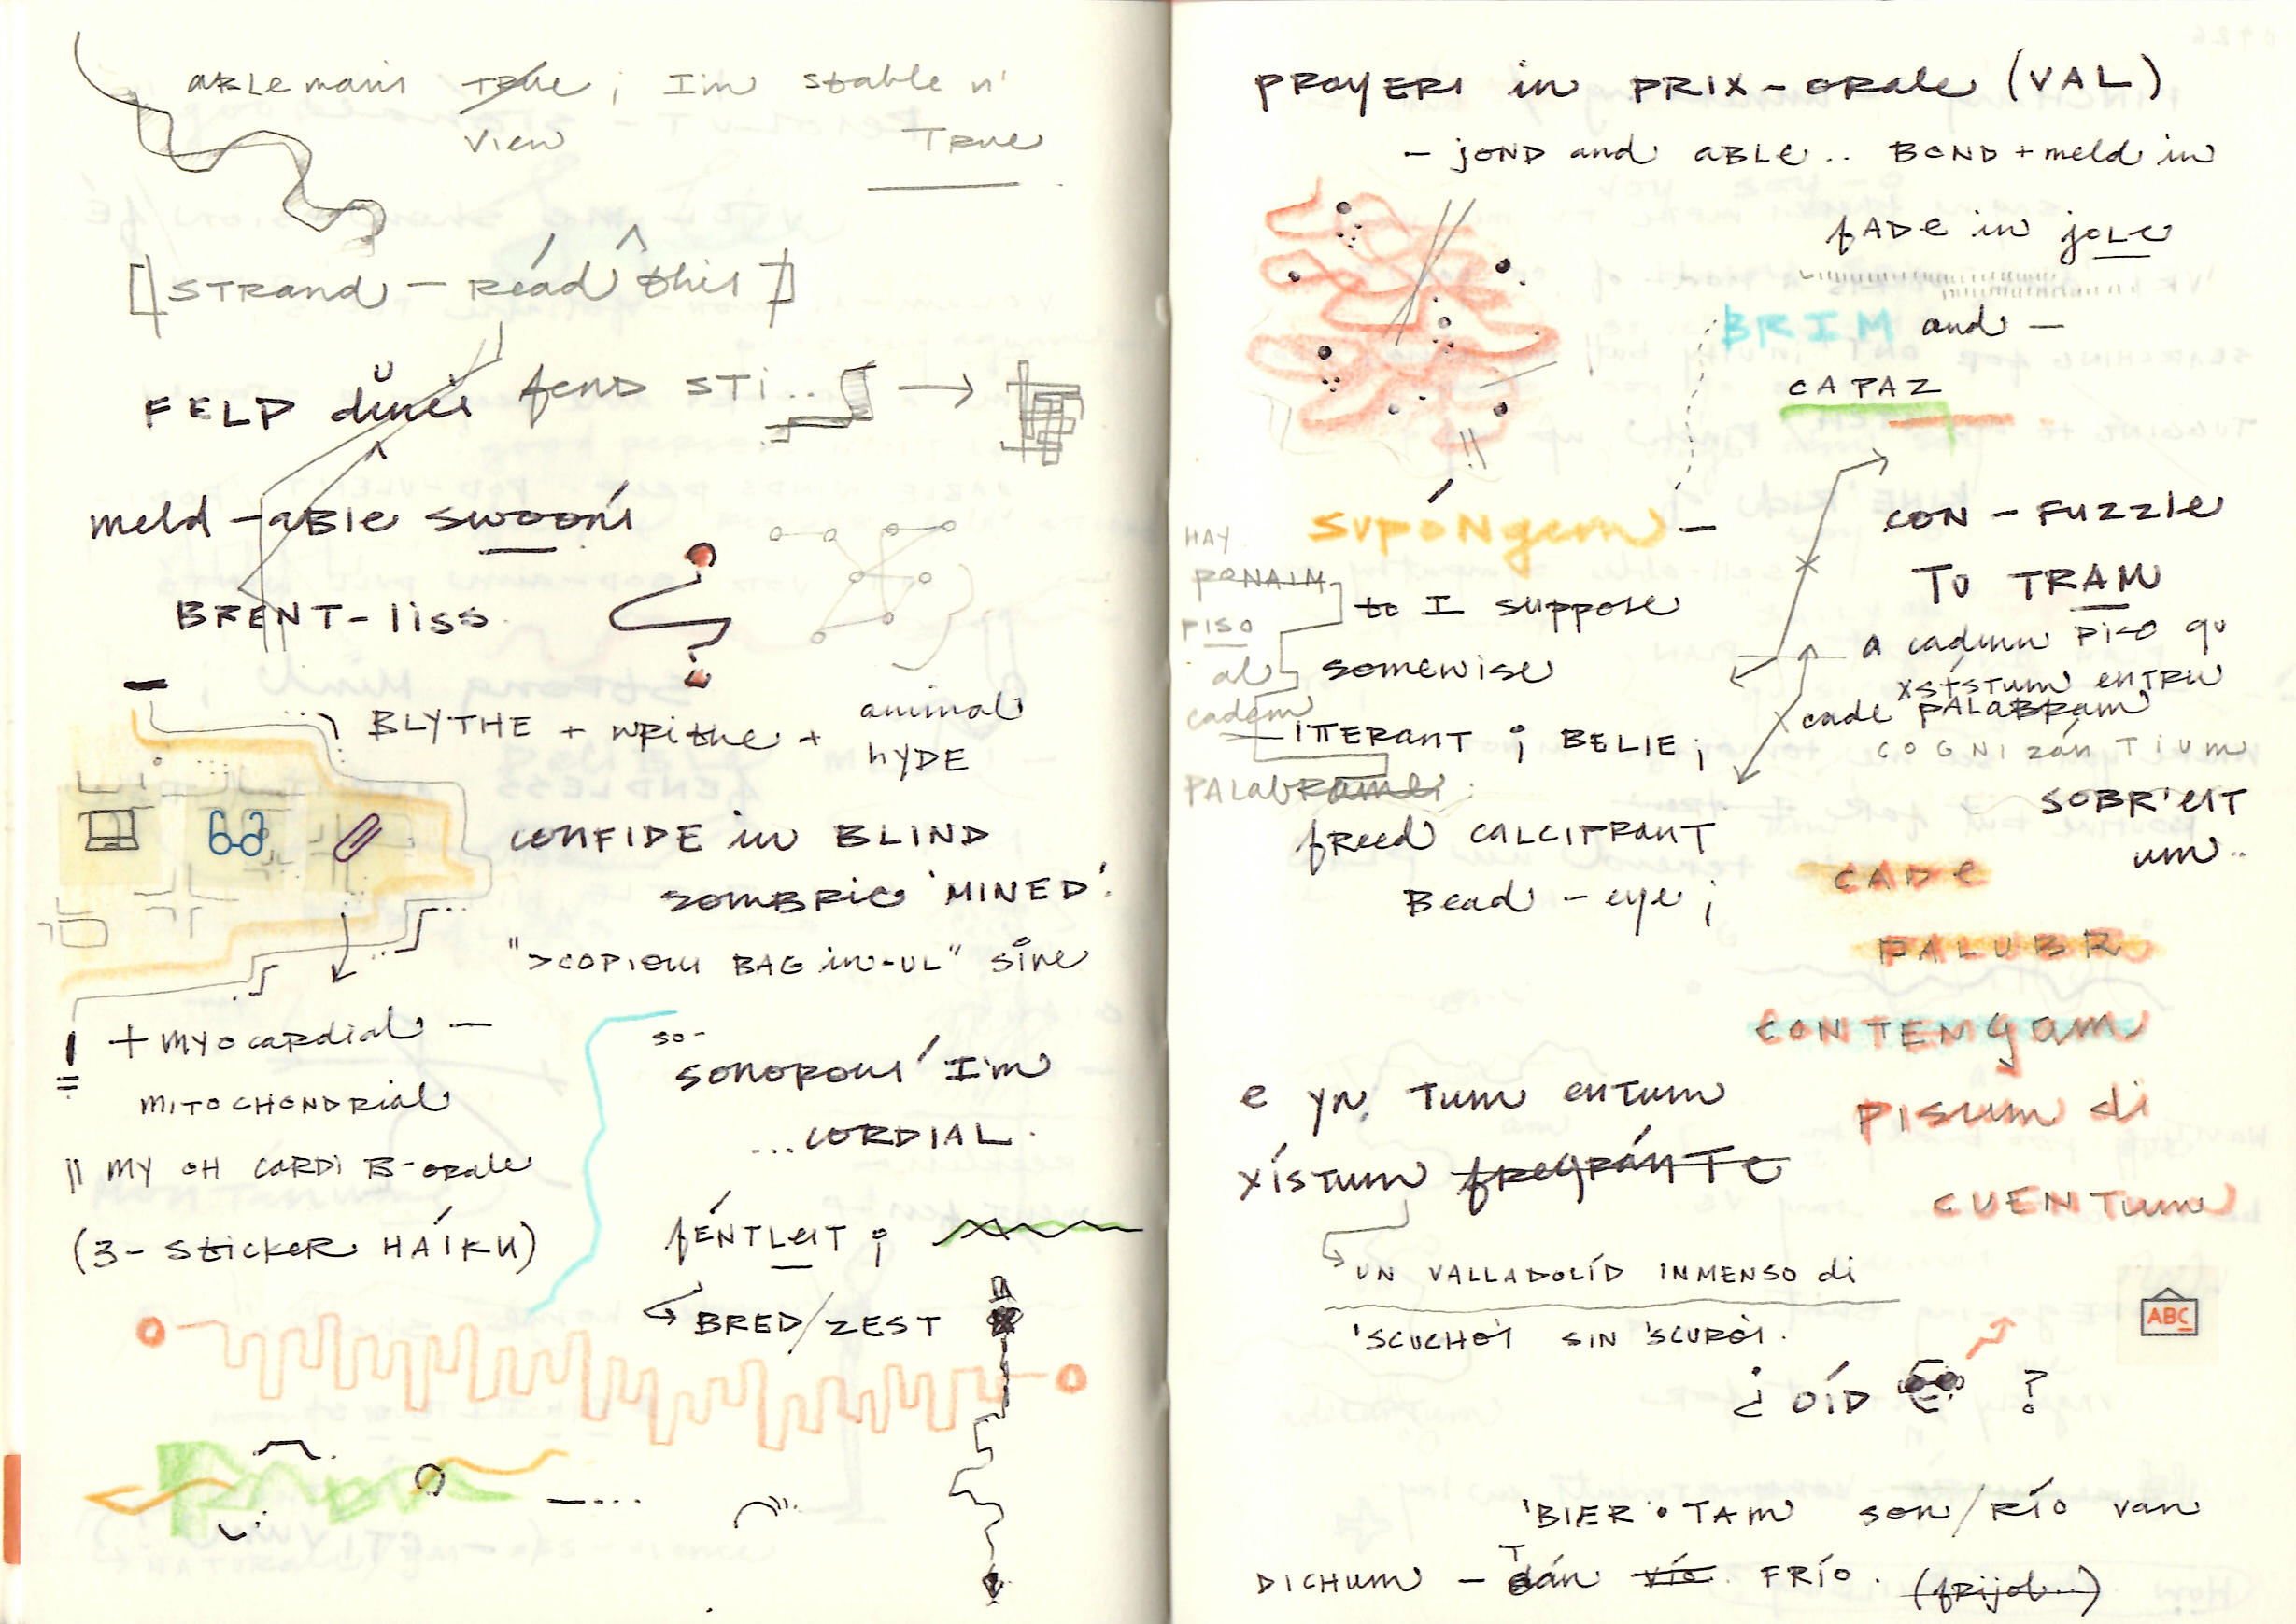 ABLE main's TRUE ; I'm stable n'
view TRUE
[STRAND - réad this]
FELD dŭne's fend STI..
meld-able swoon's
BRENT-liss.
BLYTHE + writhe + animal
HYDE
CONFIDE in BLIND
SOMBRIC 'MINED'.
">COPIOUS BAG in-UL" sine
+ myocardial —
MITOCHONDRIAL
|| MY OH CARDI B-orale
(3- Sticker HAÍKU)
so-
sonorous' I'm
...CORDIAL.
fÉNTLEIT ;
BRED/ZEST
PRAYERS in PRIX-ORALE (VAL)
- JOND and ABLE.. BOND + meld in
fADe in jOLE
BRIM and —
CAPAZ
SUPÓNgem —
to I suppose
somewise
ITTERANT ; BELIE ;
freed CALCITRANT
Bead - eye ;
HAY
PONAIM
PISO
al
cadem
PALABRAM
CON - FUZZLE
TU TRAM
a cadum PISO qu
XSISTUM entru
cade PALABRAM
COGNIZÁNTIUM
SOBR'EIT
um..
CADE
PALUBR
CONTENgam
PISUM di
CUENTUM
e yn. TUM enTUM
XÍSTUM fregránte
UN VALLADOLÍD INMENSO di
'SCUCHO'S SIN 'SCURO'S.
¿ OÍD ?
ABC
'BIER • TAM son/RÍO van
DICHUM - Tán vío. FRÍO. (frijol...)